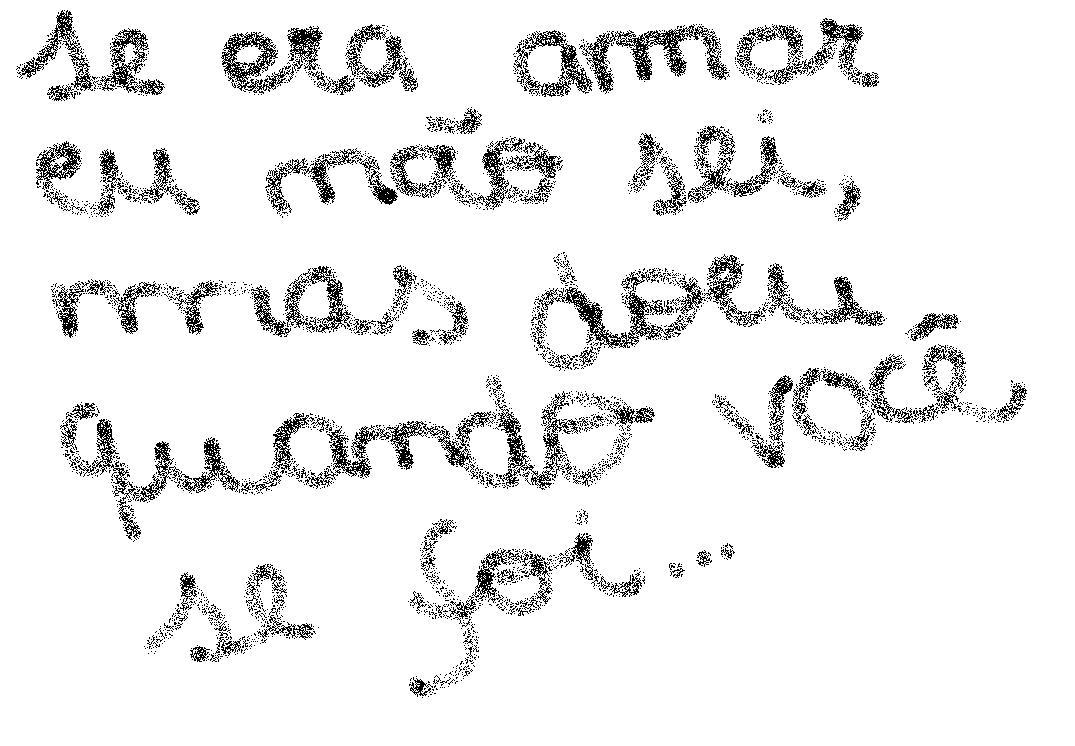 se era amor
eu não sei,
mas doeu
quando você
se foi...